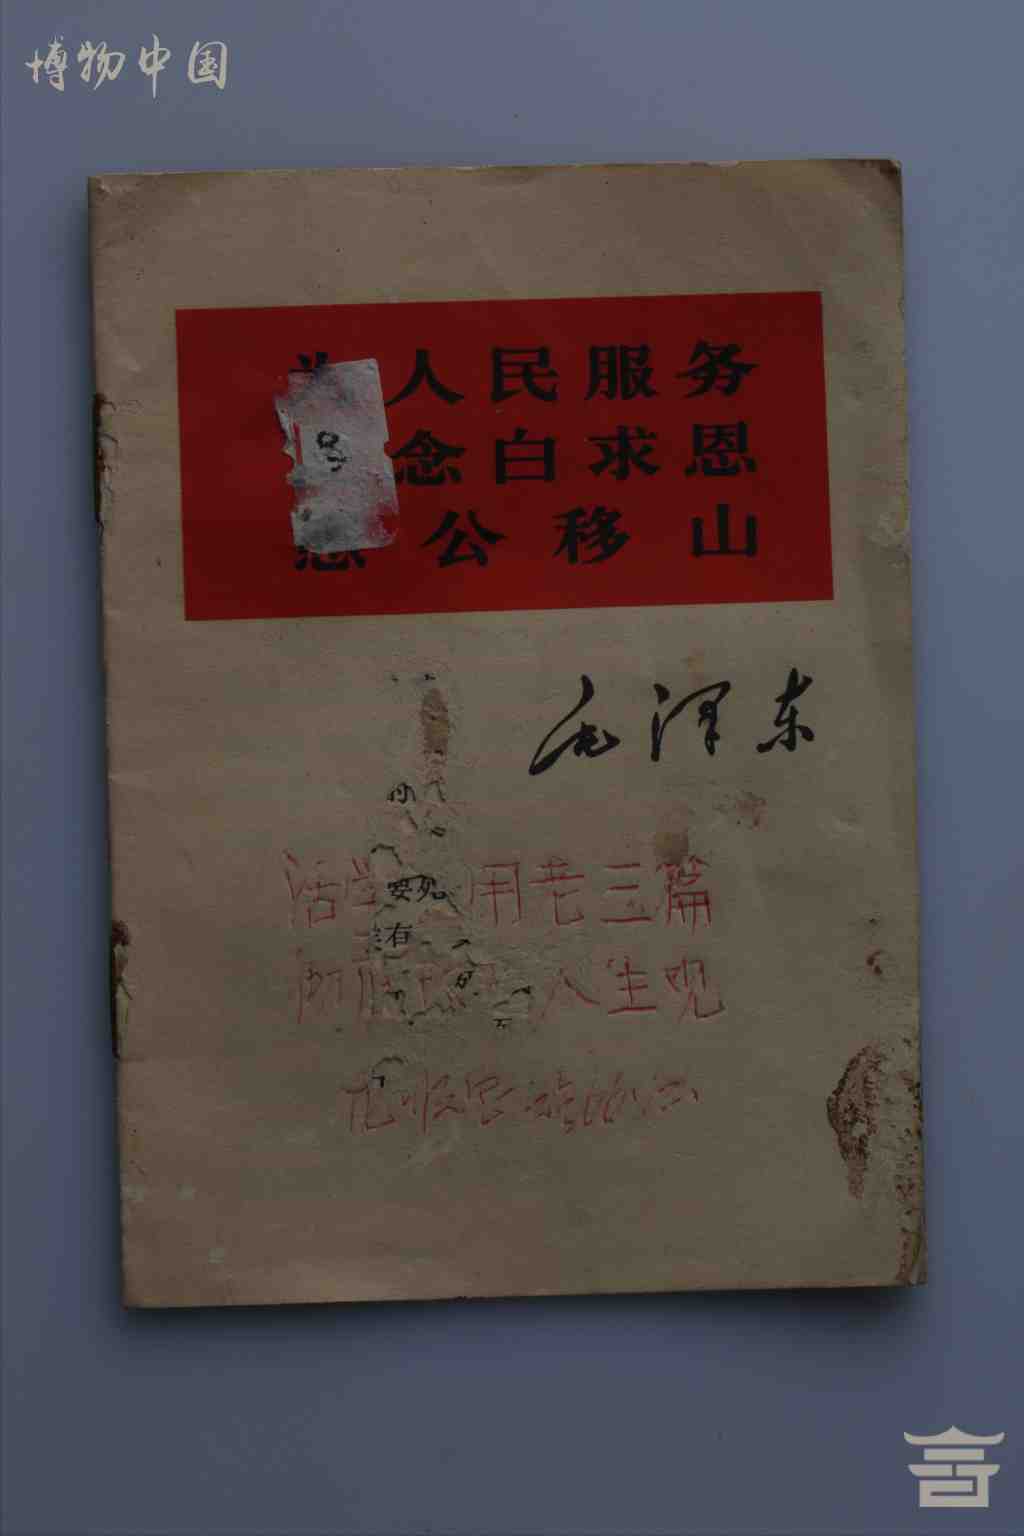 博物中国
人民服务
8
念白求恩
愚公移山
毛泽东
孙
活学 用老三篇
要 死
有
人生观